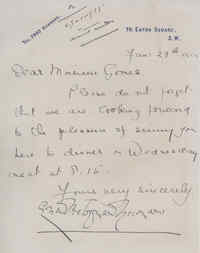 TEL. 2667 VICTORIA.
79, EATON SQUARE,
S.W.
Jan: 29th
Dear Monsieur Gomes
Please do not forget
that we are looking forward
to the pleasure of seeing you
here to dinner on Wednesday
next at 8.15.
Yours very sincerely